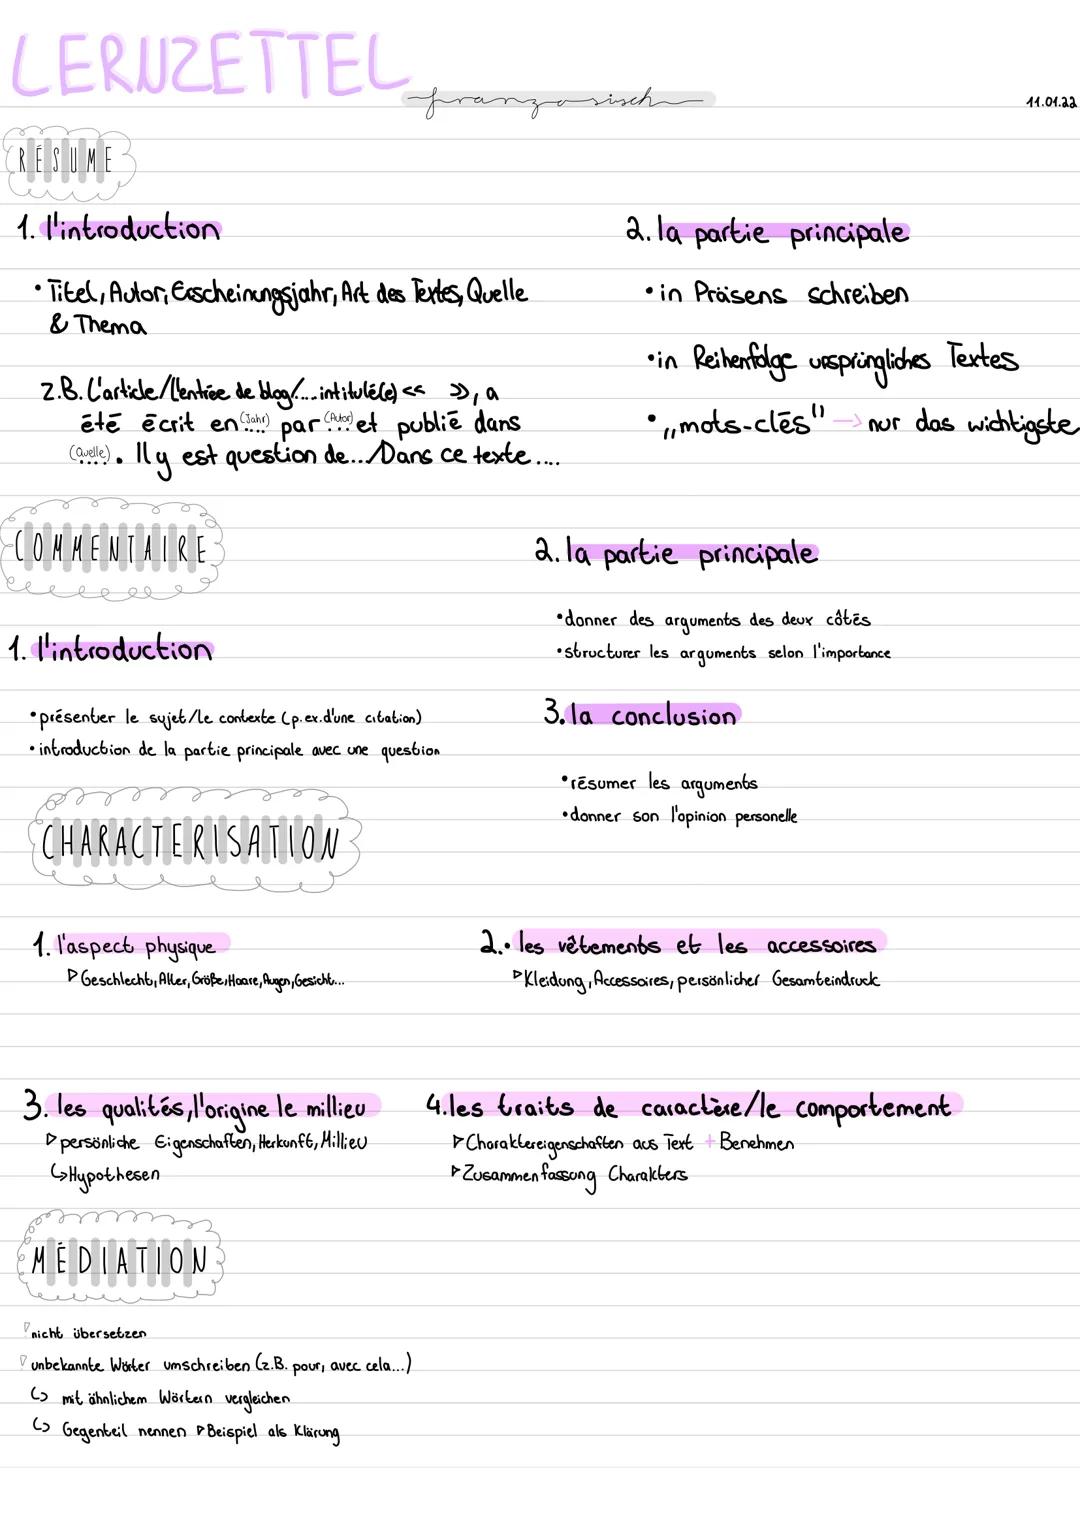 LERNZETTEL
französisch
11.01.22
RÉSUMÉ
1. l'introduction
• Titel, Autor, Erscheinungsjahr, Art des Textes, Quelle
& Thema
z.B. L'article/l'entrée de blog/... intitulé(e) << >>, a
été écrit en (Jahr) par (Autor) et publié dans
(Quelle). Il y est question de.../Dans ce texte ....
2. la partie principale
• in Präsens schreiben
• in Reihenfolge ursprüngliches Textes
• „mots-clés" → nur das wichtigste
COMMENTAIRE
1. l'introduction
• présenter le sujet/le contexte (p.ex.d'une citation)
• introduction de la partie principale avec une question
2. la partie principale
• donner des arguments des deux côtés
• structurer les arguments selon l'importance
3. la conclusion
• résumer les arguments
• donner son l'opinion personelle
CHARACTERISATION
1. l'aspect physique
▷ Geschlecht, Alter, Größe, Haare, Augen, Gesicht...
2. • les vêtements et les accessoires
▷ Kleidung, Accessoires, persönlicher Gesamteindruck
3. les qualités, l'origine le millieu
▷ persönliche Eigenschaften, Herkunft, Millieu
↳ Hypothesen
4. les traits de caractère/le comportement
▷ Charaktereigenschaften aus Text + Benehmen
▷ Zusammenfassung Charakters
MÉDIATION
▽ nicht übersetzen
▽ unbekannte Wörter umschreiben (z.B. pour, avec cela...)
↳ mit ähnlichem Wörtern vergleichen
↳ Gegenteil nennen ▷ Beispiel als Klärung